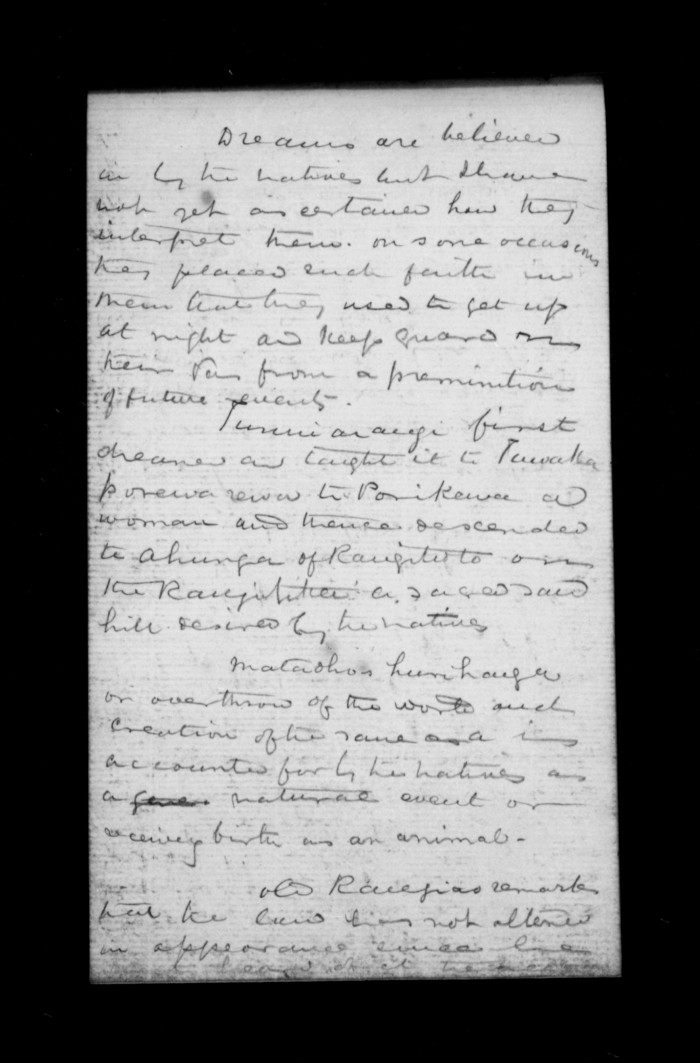 Dreams are believed
in by the natives but I have
not yet ascertained how they
interpret them. on some occasions
they placed such faith in
them that they used to get up
at night and keep guard in
their Pas from a preminition
of future events.
first
dreamed and taught it to Tawaka
to Porikawa a
woman and thence descended
to Ahunga of Rangitoto on
the a sacred sand
hill desired by the natives
or overthrow of the world and
creation of the same as a
accounted for by the natives as
a natural event or
receiving birth as an animal -
old remarks
that the land has not altered
in appearance since he